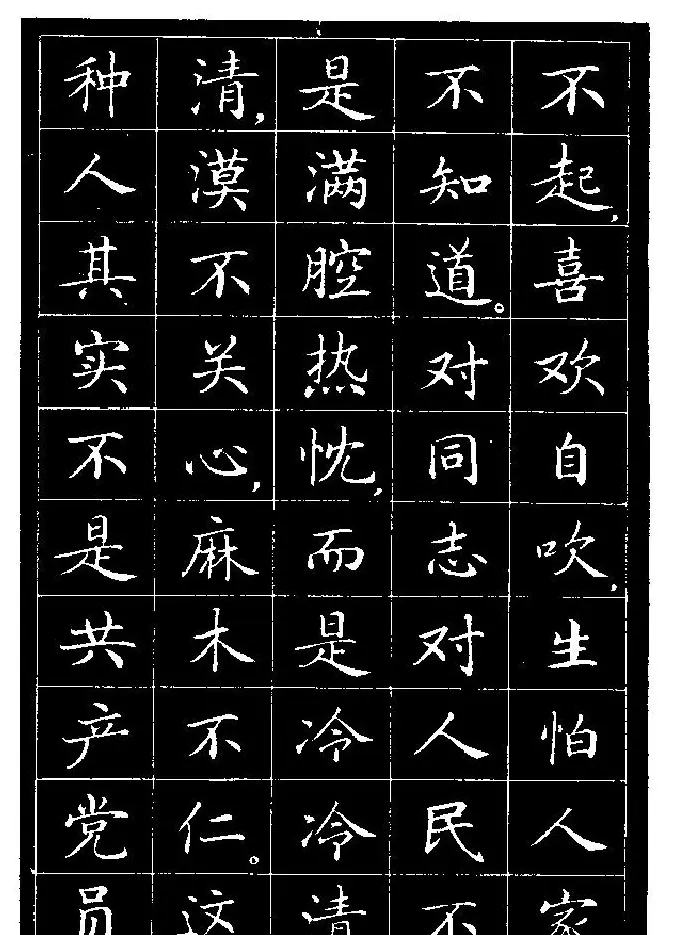 不起，喜欢自吹，生怕人家
不知道。对同志对人民不
是满腔热忱，而是冷冷清
清，漠不关心，麻木不仁。这
种人其实不是共产党员